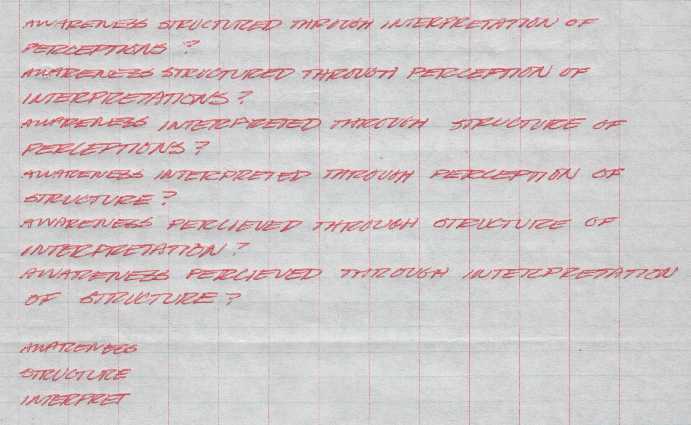 AWARENESS STRUCTURED THROUGH INTERPRETATION OF
PERCEPTIONS ?
AWARENESS STRUCTURED THROUGH PERCEPTION OF
INTERPRETATIONS ?
AWARENESS INTERPRETED THROUGH STRUCTURE OF
PERCEPTIONS ?
AWARENESS INTERPRETED THROUGH PERCEPTION OF
STRUCTURE ?
AWARENESS PERCIEVED THROUGH STRUCTURE OF
INTERPRETATION ?
AWARENESS PERCIEVED THROUGH INTERPRETATION
OF STRUCTURE ?
AWARENESS
STRUCTURE
INTERPRET